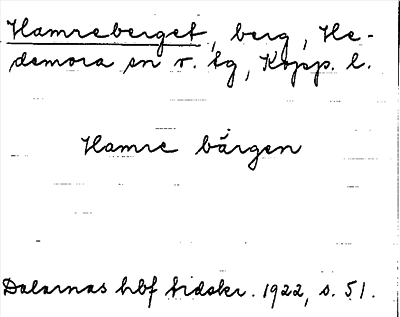 Hamreberget, berg, He-
demora sn v. tg, Kopp. l.
Hamre bärgen
Dalarnas hbf tidskr. 1922, s. 51.